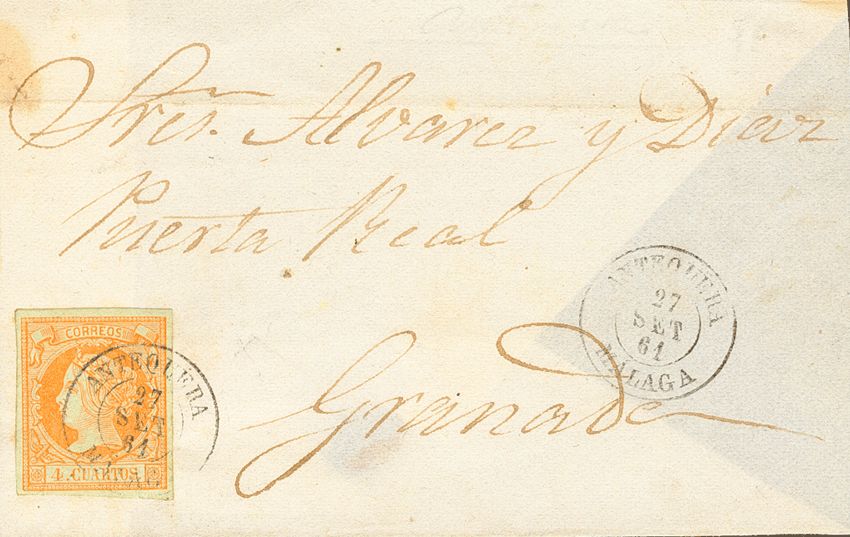 Sres. Alvarez y Diaz
Puerta Real
Granada
ANTEQUERA
27
SET
61
MALAGA
CORREOS
4. CUARTOS
ANTEQUERA
27
SET
61